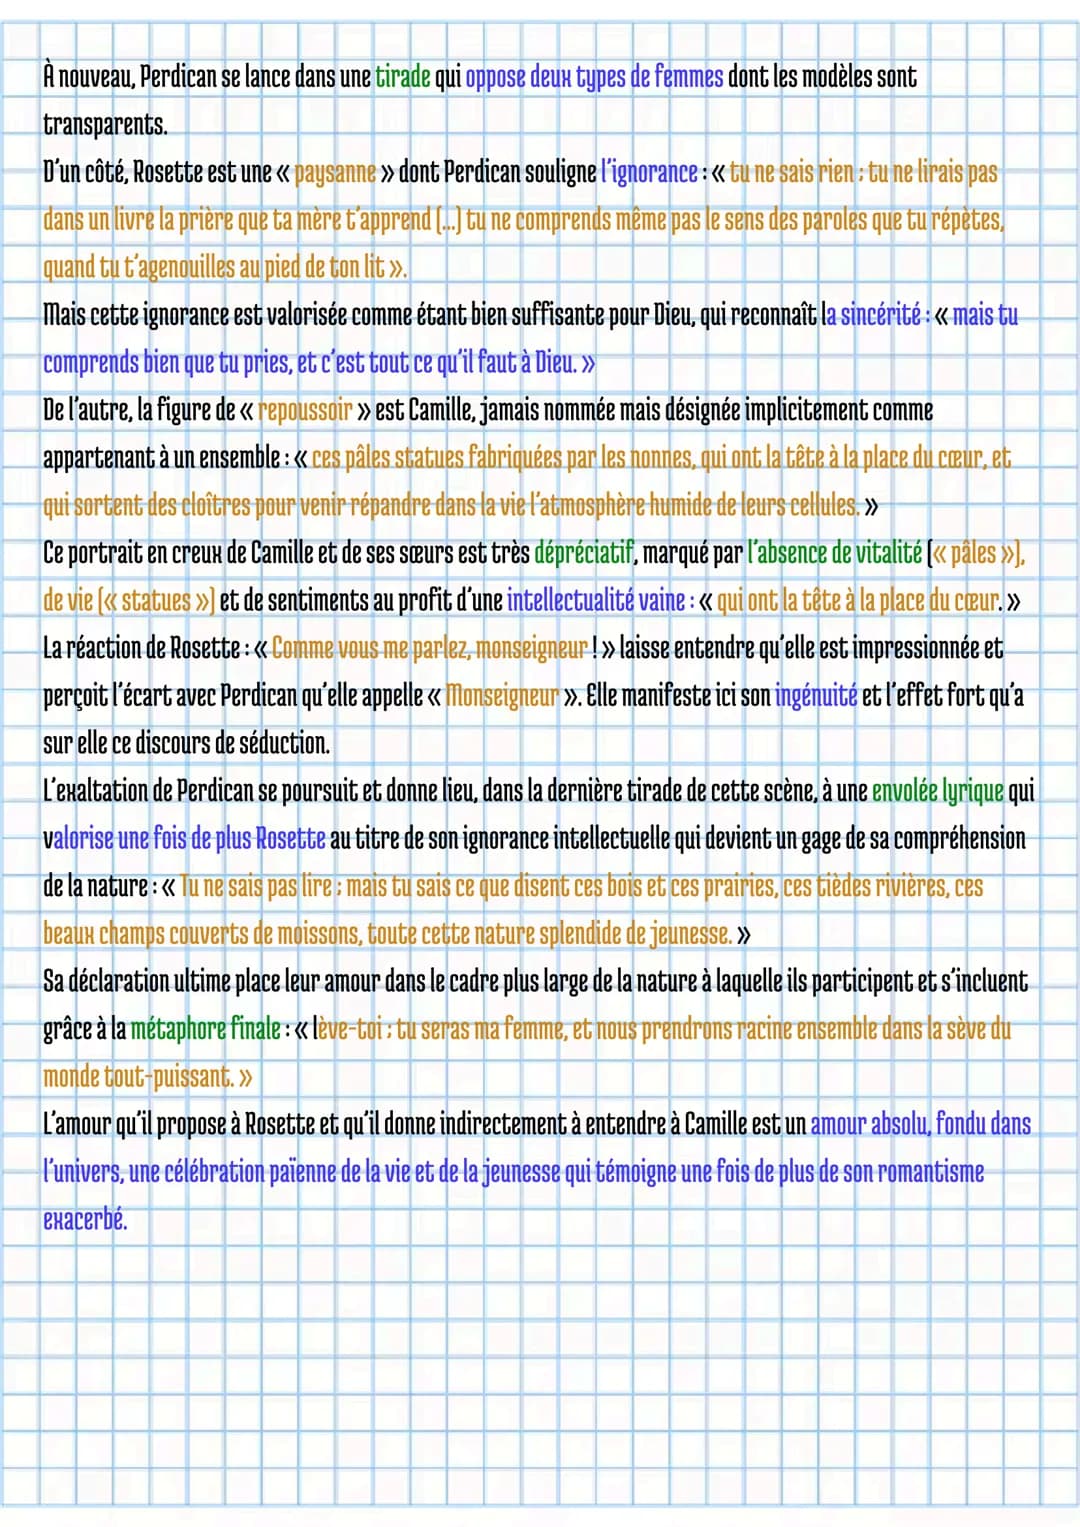 À nouveau, Perdican se lance dans une tirade qui oppose deux types de femmes dont les modèles sont
transparents.
D'un côté, Rosette est une « paysanne » dont Perdican souligne l'ignorance : « tu ne sais rien ; tu ne lirais pas
dans un livre la prière que ta mère t'apprend (...) tu ne comprends même pas le sens des paroles que tu répètes,
quand tu t'agenouilles au pied de ton lit ».
Mais cette ignorance est valorisée comme étant bien suffisante pour Dieu, qui reconnaît la sincérité : « mais tu
comprends bien que tu pries, et c'est tout ce qu'il faut à Dieu. »
De l'autre, la figure de « repoussoir » est Camille, jamais nommée mais désignée implicitement comme
appartenant à un ensemble : « ces pâles statues fabriquées par les nonnes, qui ont la tête à la place du cœur, et
qui sortent des cloîtres pour venir répandre dans la vie l'atmosphère humide de leurs cellules. »
Ce portrait en creux de Camille et de ses sœurs est très dépréciatif, marqué par l'absence de vitalité (« pâles »),
de vie (« statues ») et de sentiments au profit d'une intellectualité vaine : « qui ont la tête à la place du cœur. »
La réaction de Rosette : « Comme vous me parlez, monseigneur ! » laisse entendre qu'elle est impressionnée et
perçoit l'écart avec Perdican qu'elle appelle « Monseigneur ». Elle manifeste ici son ingénuité et l'effet fort qu'a
sur elle ce discours de séduction.
L'exaltation de Perdican se poursuit et donne lieu, dans la dernière tirade de cette scène, à une envolée lyrique qui
valorise une fois de plus Rosette au titre de son ignorance intellectuelle qui devient un gage de sa compréhension
de la nature : « Tu ne sais pas lire ; mais tu sais ce que disent ces bois et ces prairies, ces tièdes rivières, ces
beaux champs couverts de moissons, toute cette nature splendide de jeunesse. »
Sa déclaration ultime place leur amour dans le cadre plus large de la nature à laquelle ils participent et s'incluent
grâce à la métaphore finale : « lève-toi ; tu seras ma femme, et nous prendrons racine ensemble dans la sève du
monde tout-puissant. »
L'amour qu'il propose à Rosette et qu'il donne indirectement à entendre à Camille est un amour absolu, fondu dans
l'univers, une célébration païenne de la vie et de la jeunesse qui témoigne une fois de plus de son romantisme
exacerbé.